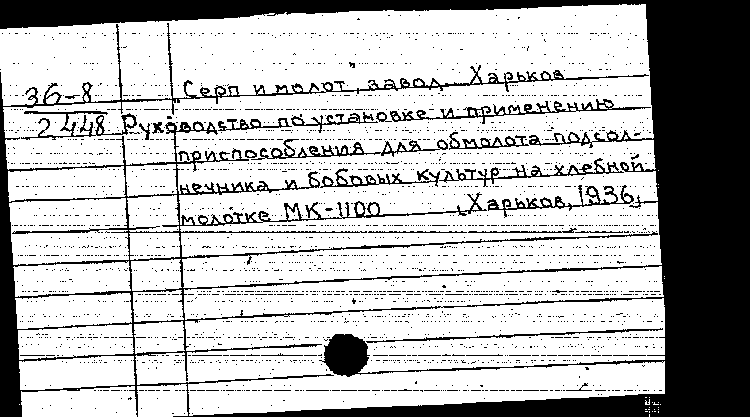 36-8
2448
"Серп и молот", завод. Харьков
Руководство по установке и применению
приспособления для обмолота подсол-
нечника и бобовых культур на хлебной
молотке МК-1100 [Харьков, 1936]